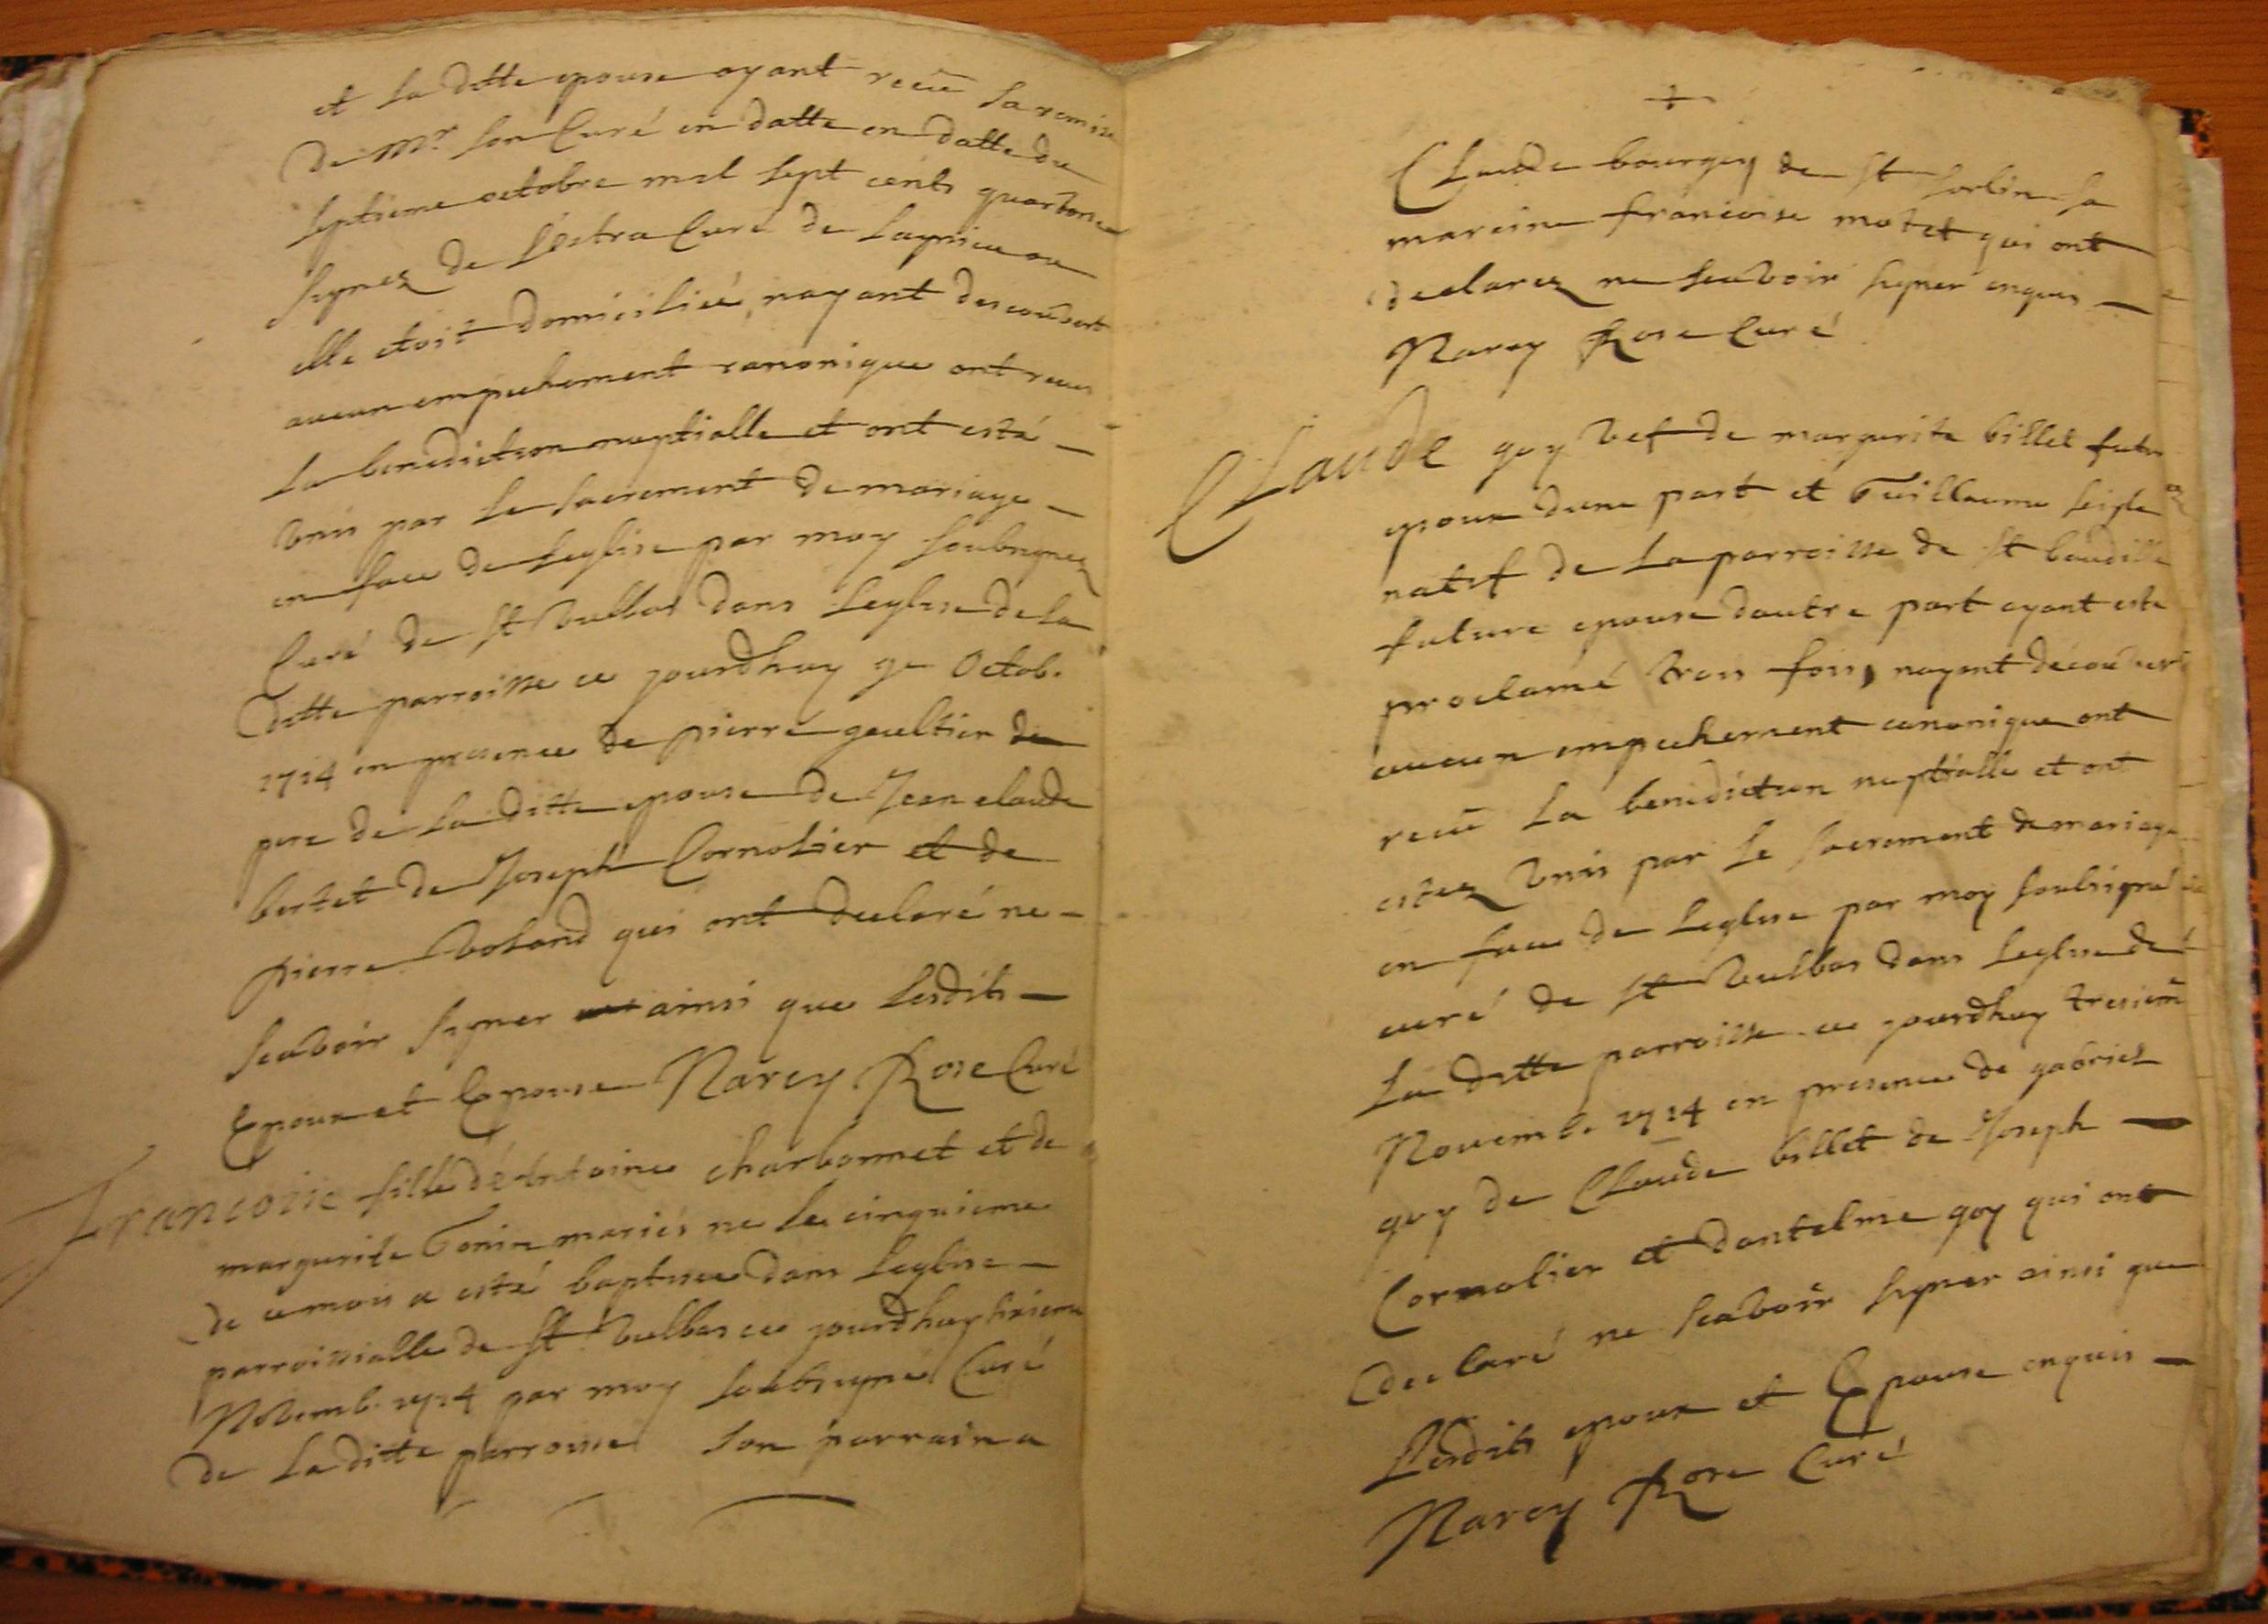 et la ditte epouse ayant receu sa remise
de Mr. son Curé en datte en datte du
septieme octobre mil sept cents quartorse
signez de Lestra Curé de Lagnieu ou
elle etoit domiciliée, nayant descouvert
aucun empechement canonique ont receu
la benediction nuptialle et ont esté
unis par le sacrement de mariage
en face de Leglise par moy soubsignez
Curé de st Vulbas dans Leglise de la
ditte parroisse ce jourdhuy 9e Octob.
1714 en presence de pierre gaultier de
pere de la ditte epouse de Jean claude
bertet de Joseph Cornolier et de
pierre Voland qui ont declaré ne
scavoir signer ainsi que lesdits
Epoux et Epouse Narcy Rose Curé
Francoise fille dé Antoine charbonnet et de
margurite Tonin mariés ne le cinquieme
de ce mois a esté baptisee dans Leglise
parroissialle de st Vulbas ce jourdhuy
Novemb. 1714 par moy soubsigné Curé
de la ditte parroisse son parrain a
+
Claude bourgey de st sorlin sa
mareine francoise motet qui ont
declarez ne scavoir signer enquis
Narcy Rose Curé
Claude goy vef de margurite billet futur
epoux dune part et Guillaume
natif de La parroisse de st baudille
future epouse dautre part ayant esté
proclamé trois fois, nayant découvert
aucun empechement canonique ont
receu La benediction nuptialle et ont
estez Unis par le sacrement de mariage
en face de Leglise par moy soubsigné
curé de st Vulbas dans Leglise de
La ditte parroisse ce jourdhuy tresieme
Novemb. 1714 en presence de gabriel
goy de Claude billet de Joseph
Cornolier et dantelme goy qui ont
declaré ne scavoir signer ainsi que
Lesdits epoux et Epouse enquis
Narcy Rose Curé